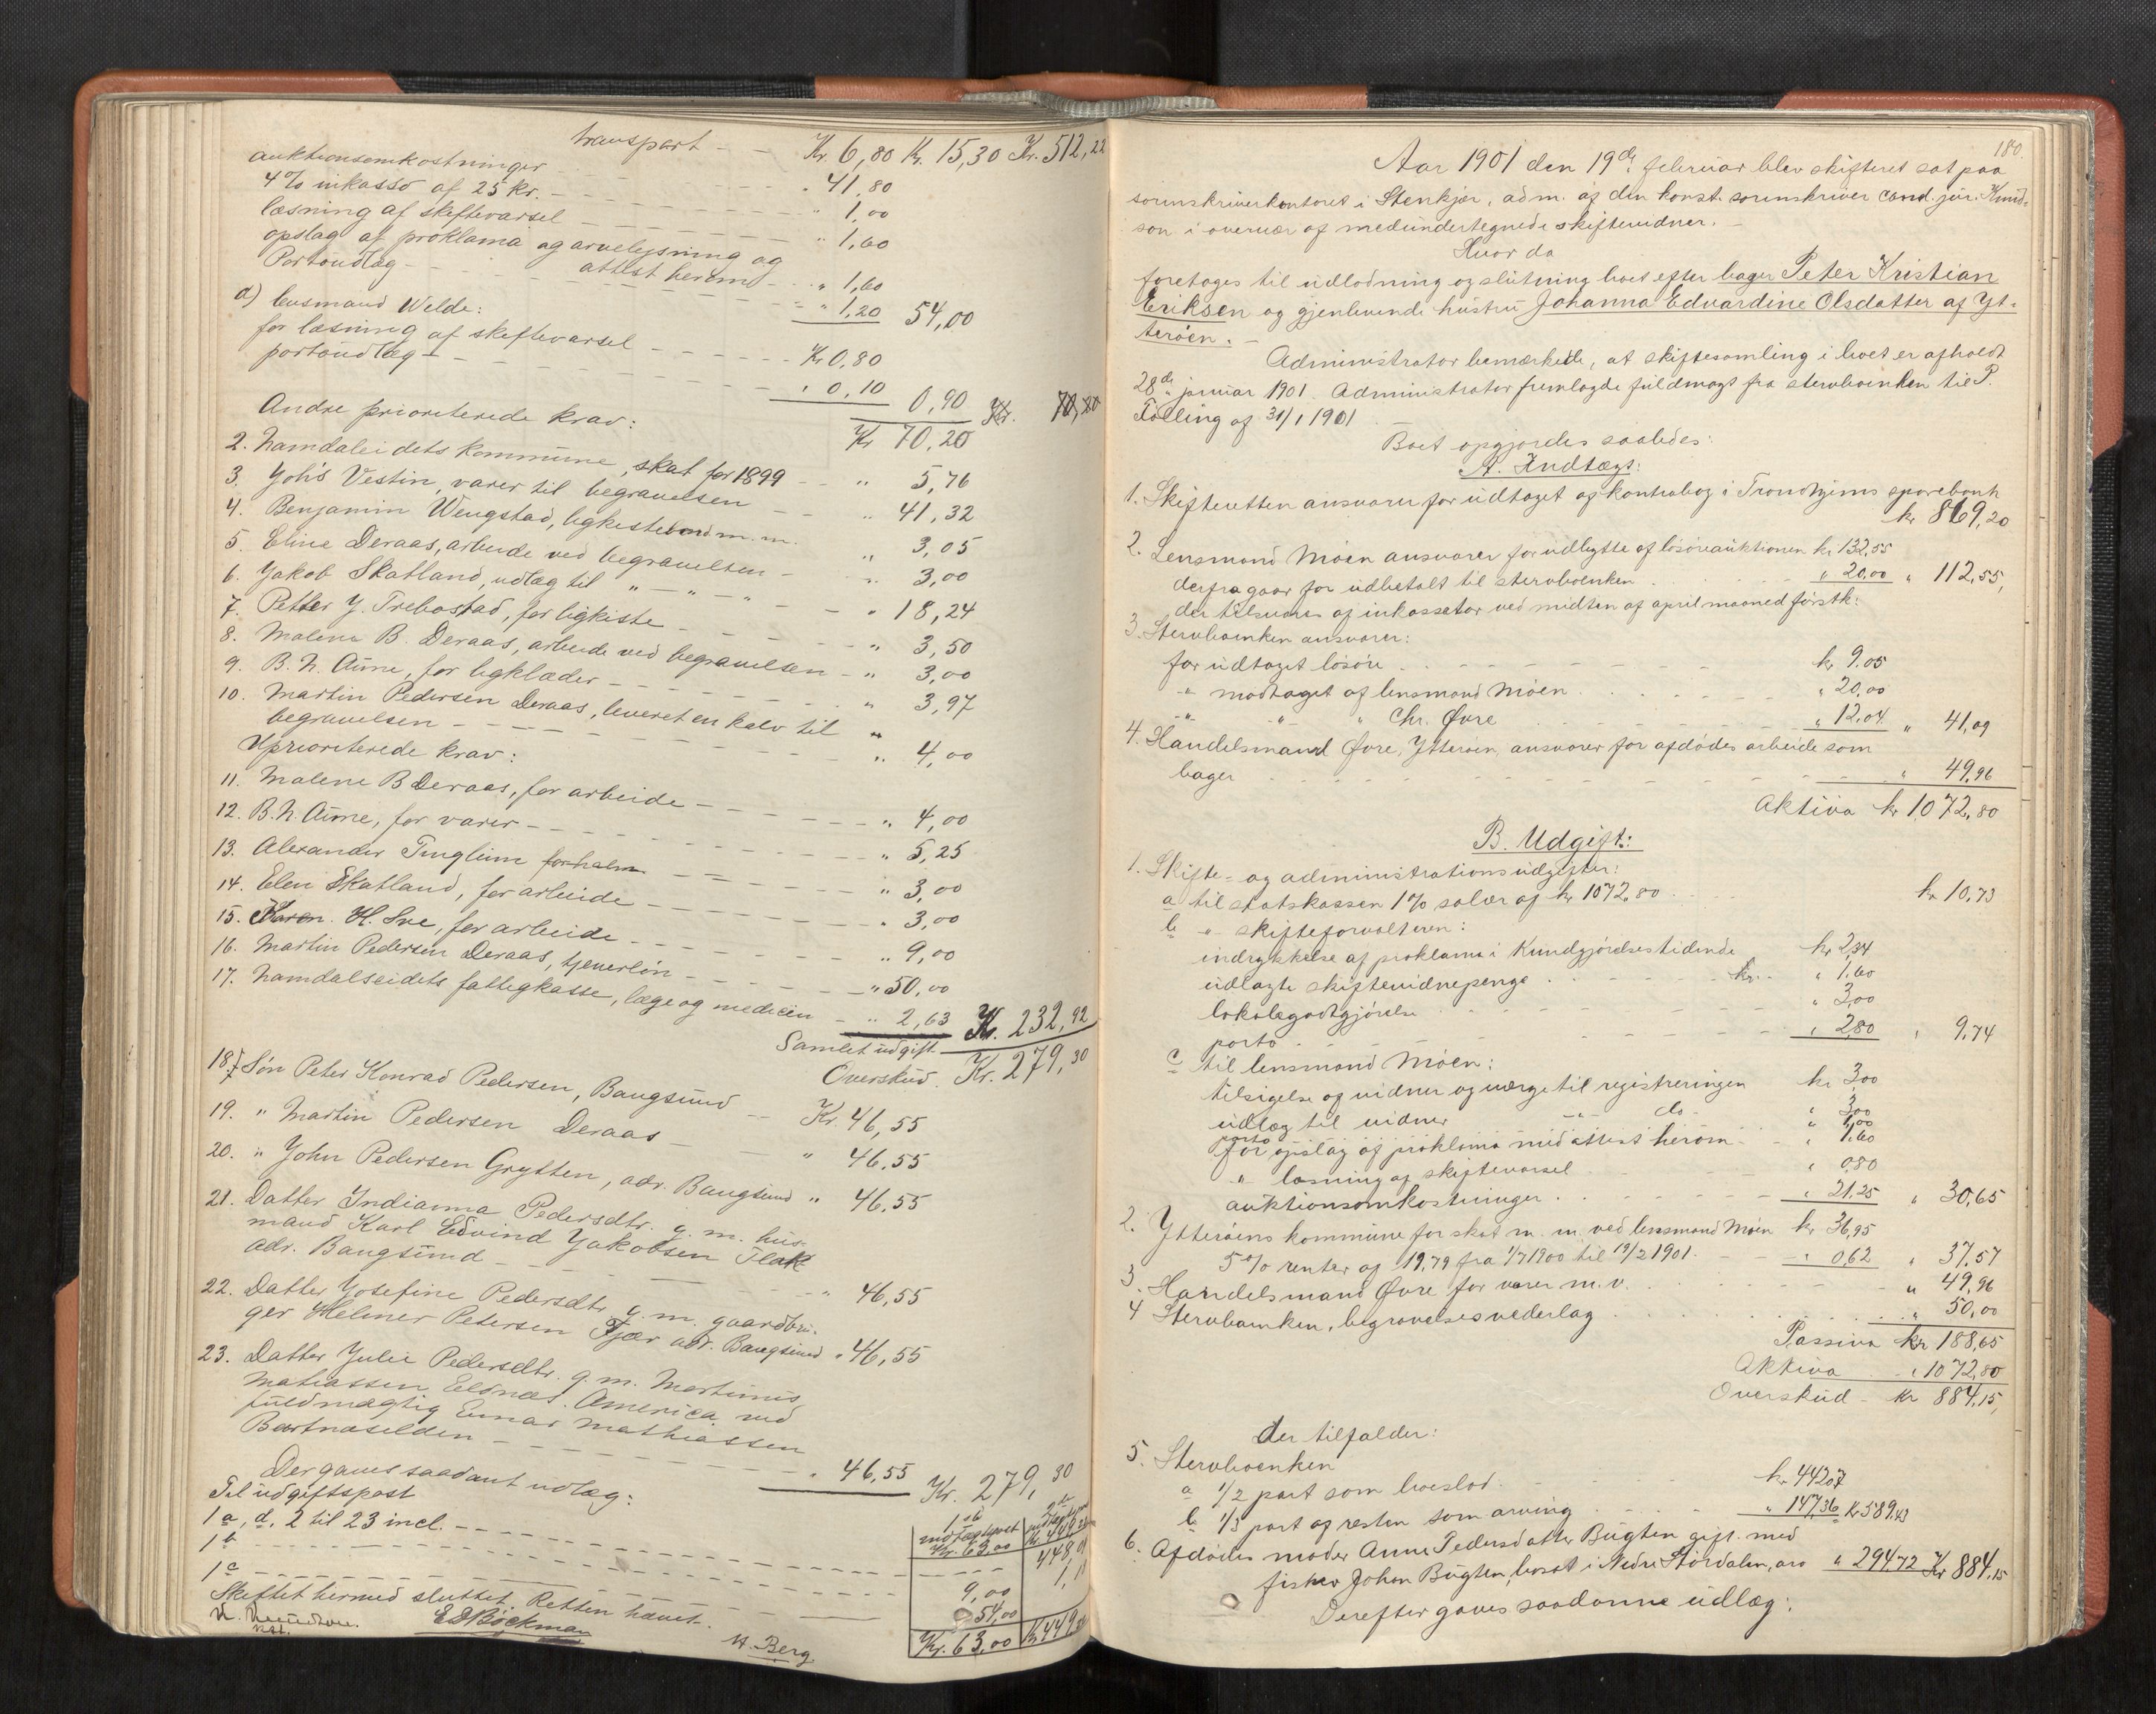 transport - - Kr. 6,80 Kr. 15,30 Kr. 512,22
auktionsomkostninger - - - " 41,80
4% inkasso af 25 kr. - - - " 1,00
læsning af skiftevarsel - - - " 1,60
opslag af proklama og arvelysning og
attest herom - - " 1,60
Portoudlæg - - - " 1,20 54,00
d) lensmand Welde:
for læsning af skiftevarsel - - - Kr 0,80
portoudlæg - - - " 0,10 0,90 Kr. 70,20
Kr 70,20
Andre prioriterede krav:
2. Namdaleidets kommune, skat for 1899 - - " 5,76
3. Johs Vestin, varer til begravelsen - - " 41,32
4. Benjamin Wengstad, ligkistebond m. m. " 3,05
5. Eline Deraas, arbeide ved begravelsen - " 3,00
6. Jakob Skatland, udlæg til " - " - " - - " 18,24
7. Petter J. Trebostad, for ligkiste - - - " 3,50
8. Malene B. Deraas, arbeide ved begravelsen - " 3,00
9. B. N. Aune, for ligklæder - - - " 3,97
10. Martin Pedersen Deraas, leveret en kalv til "
begravelsen - - - " 4,00
Uprioriterede krav:
11. Malene B Deraas, for arbeide - - - " 4,00
12. B. N. Aune, for varer - - - " 5,25
13. Alexander Tinglum for halm - - - " 3,00
14. Elen Skatland, for arbeide - - - " 3,00
15. Karen H. Sve, for arbeide - - - " 9,00
16. Martin Pedersen Deraas, tjenerløn - - - " 50,00
17. Namdalseidets fattigkasse, læge og medicin - " 2,63 Kr. 232,92
Samlet udgift
Overskud. Kr. 279,30
18. Søn Peter Konrad Pedersen, Bangsund - - Kr. 46,55
19. " Martin Pedersen Deraas - " 46,55
20. " John Pedersen Grytten, adr. Bangsund " 46,55
21. Datter Indianna Pedersdtr. g. m. hus-
mand Karl Edvind Jakobsen Flak
adr. Bangsund - - - " 46,55
22. Datter Josefine Pedersdtr g. m. gaardbru-
ger Helmer Petersen Fjær adr. Bangsund " 46,55
23. Datter Julie Pedersdtr. g. m. Martinus
Mathiassen Eldnæs. America ved
fuldmægtig Einar Mathiassen
Bartnæselden - - - " 46,55 Kr. 279,30
Der gaves saadant udlæg:
Til udgiftspost
1a, d, 2 til 23 incl. - - - 448,01
1b - - - 9,00 1,11
1c - - - 54,00
Kr. 63,00
Skiftet hermed sluttet. Retten hævet.
E D Bøckman
H. Berg
180.
Aar 1901 den 19de februar blev skifteret sat paa
sorenskriverkontoret i Stenkjær, adm. af den konst. sorenskriver cand. jur. Knud-
son i overvær af medundertegnede skiftevidner. -
Hvor da
foretages til udlodning og slutning boet efter bager Peter Kristian
Eriksen og gjenlevende hustru Johanna Edvardine Olsdatter af Yt-
terøen. -
Administrator bemærkede, at skiftesamling i boet er afholdt
28de januar 1901. Administrator fremlagde fuldmagt fra stervboenken til P.
Følling af 31/1 1901
Boet opgjordes saaledes:
A. Indtægt:
1. Skifteretten ansvarer for udtaget af kontrabog i Trondhjems sparebank
kr 869,20
2. Lensmand Moen ansvarer for udbytte af løsøreauktionen kr 132,55
derfra gaar for udbetalt til stervboenken " 20,00 " 112,55,
der tilsvares af inkassator ved midten af april maaned førstk:
3. Stervboenken ansvarer:
for udtaget løsøre - - - kr 9,05
" modtaget af lensmand Moen - - - " 20,00
" " " Chr. Øvre - - - " 12,04 " 41,09
4. Handelsmand Øvre, Ytterøen, ansvarer for afdødes arbeide som
bager - - - " 49,96
Aktiva kr 1072,80
B. Udgift:
1. Skifte- og administrationsudgifter:
a til statskassen 1% salær af kr 1072,80 kr 10,73
b " skifteforvalteren:
indrykkelse af proklama i Kundgjørelsestidende kr 2,34
udlagte skiftevidnepenge kr. " 1,60
lokalegodtgjørelse " 3,00
porto " 2,80 " 9,74
c til lensmand Moen:
tilsigelse af vidner og værge til registreringen kr 3,00
udlæg til vidner " do - " 3,00
porto " 1,00
for opslag af proklama med attest herom - " 1,60
" læsning af skiftevarsel " 0,80
auktionsomkostninger " 21,25 " 30,65
2. Ytterøens kommune for skat m. m. ved lensmand Moen kr 36,95
5% renter af 19,79 fra 1/7 1900 til 19/2 1901. " 0,62 " 37,57
3. Handelsmand Øvre for varer m. v. " 49,96
4 Stervboenken, begravelsesvederlag " 50,00
Passiva kr 188,65
Aktiva " 1072,80
Overskud - kr 884,15,
der tilfalder:
5. Stervboenken
a 1/2 part som boeslod kr 442,07
b 1/3 part af resten som arving " 147,36 Kr 589,43
6. Afdødes moder Anne Pedersdatter Bugten gift med
fisker Johan Bugten, bosat i Nedre Stördalen, arv " 294,72 Kr 884,15
Derefter gaves saadanne udlæg: